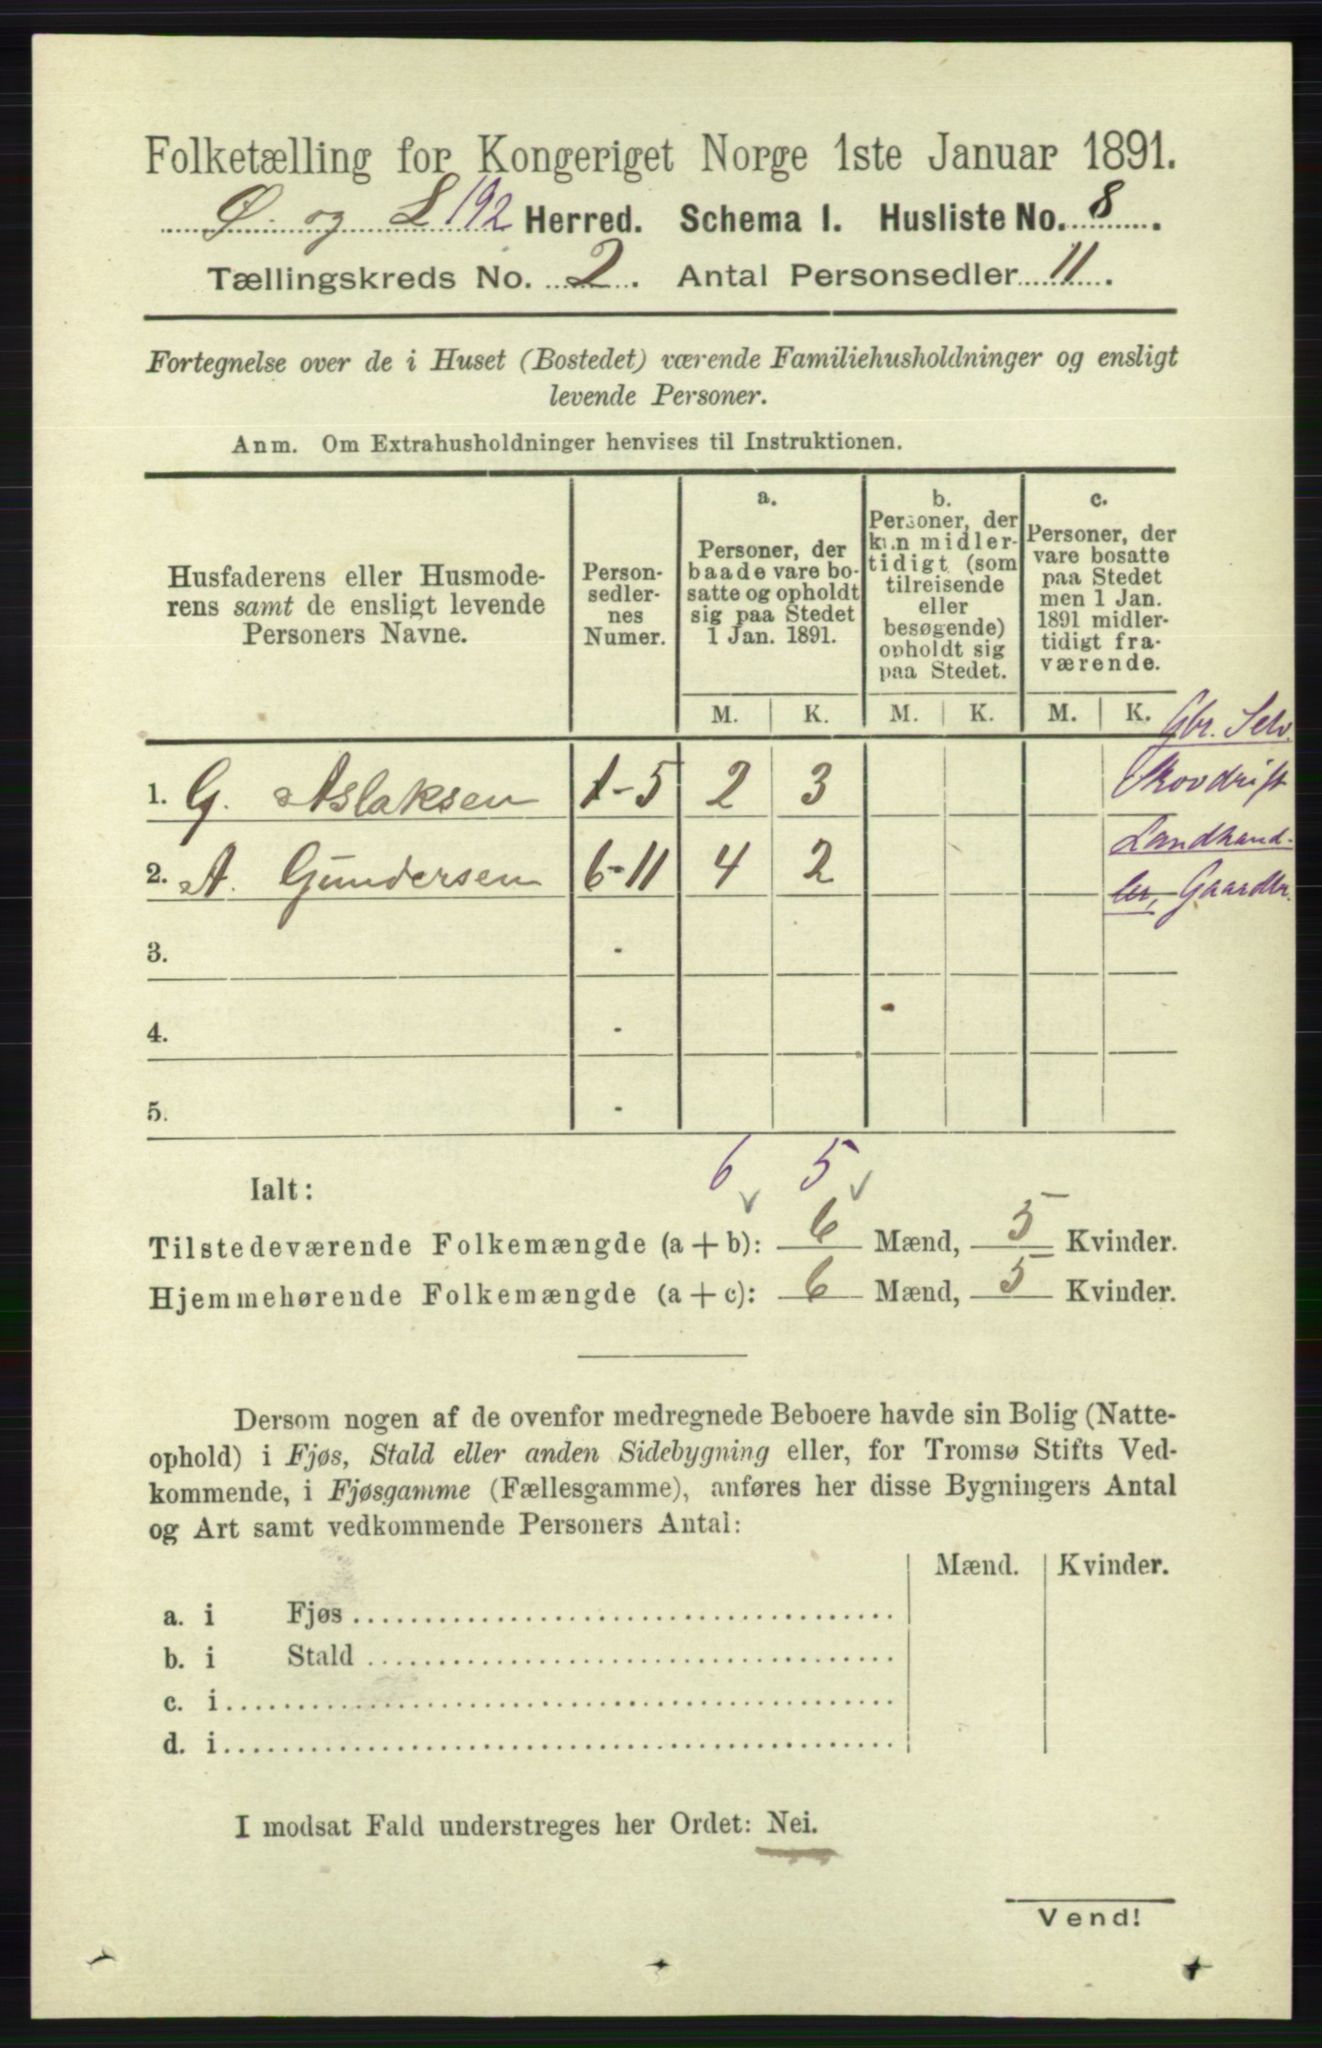 Folketælling for Kongeriget Norge 1ste Januar 1891.
Ø. og L 192 Herred. Schema I. Husliste No. 8.
Tællingskreds No. 2. Antal Personsedler 11.
Fortegnelse over de i Huset (Bostedet) værende Familiehusholdninger og ensligt
levende Personer.
Anm. Om Extrahusholdninger henvises til Instruktionen.
Husfaderens eller Husmode-
rens samt de ensligt levende
Personers Navne.
Person-
sedler-
nes
Numer.
a.
Personer, der
baade vare bo-
satte og opholdt
sig paa Stedet
1 Jan. 1891.
b.
Personer, der
kun midler-
tidigt (som
tilreisende
eller
besøgende)
opholdt sig
paa Stedet.
c.
Personer, der
vare bosatte
paa Stedet
men 1 Jan.
1891 midler-
tidigt fra-
værende.
M. K. M. K. M. K.
Gbr. Selv.
1. G. Aslaksen 1-5 2 3 Skovdrift
Landhand-
2. A. Gundersen 6-11 4 2 ler, Gaardbr.
3. -
4. -
5. -
6 5
Ialt:
Tilstedeværende Folkemængde (a + b): 6 Mænd, 5 Kvinder.
Hjemmehørende Folkemængde (a + c): 6 Mænd, 5 Kvinder.
Dersom nogen af de ovenfor medregnede Beboere havde sin Bolig (Natte-
ophold) i Fjøs, Stald eller anden Sidebygning eller, for Tromsø Stifts Ved-
kommende, i Fjøsgamme (Fællesgamme), anføres her disse Bygningers Antal
og Art samt vedkommende Personers Antal:
Mænd. Kvinder.
a. i Fjøs
b. i Stald
c. i
d. i
I modsat Fald understreges her Ordet: Nei.
Vend!